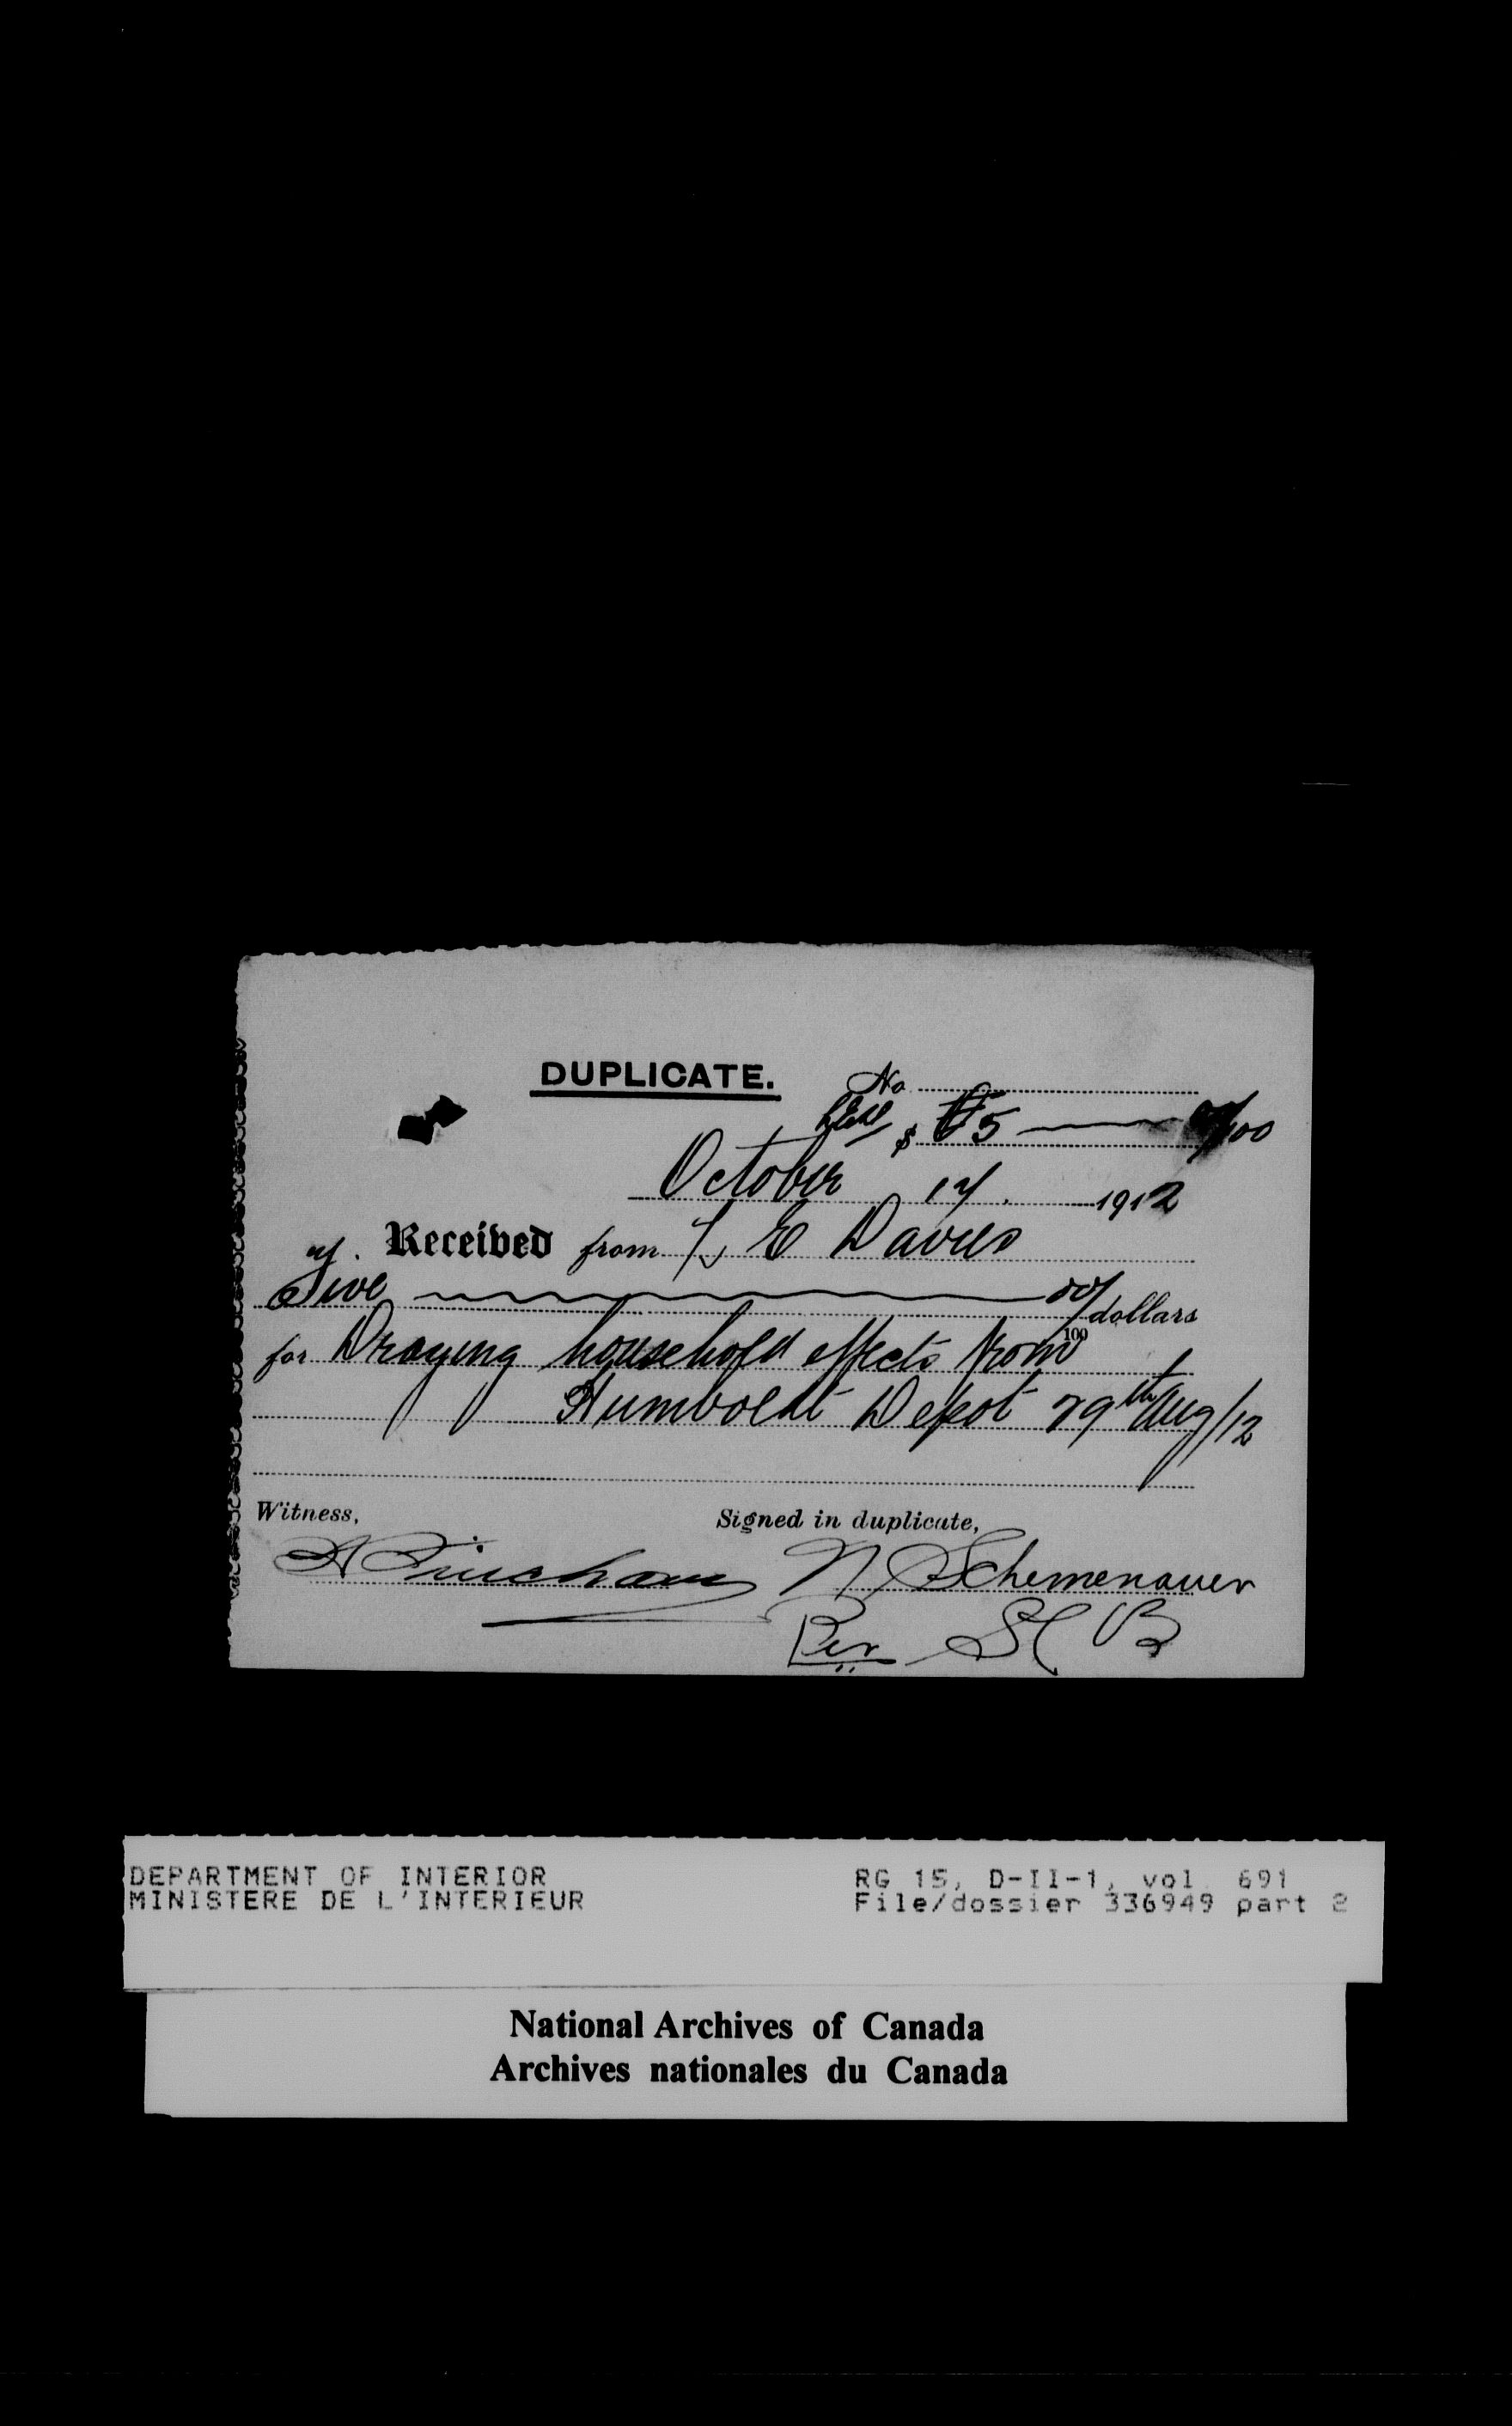 DUPLICATE.
No
$ 5 00/100
October 17. 1912
Received from E Davies
Five 00/100 dollars
for Draying household effects from
Humboldt Depot 29th Aug/12
Witness, Signed in duplicate,
N Schemenauer
Per
DEPARTMENT OF INTERIOR RG 15, D-II-1, vol 691
MINISTERE DE L'INTERIEUR File/dossier 336949 part 2
National Archives of Canada
Archives nationales du Canada